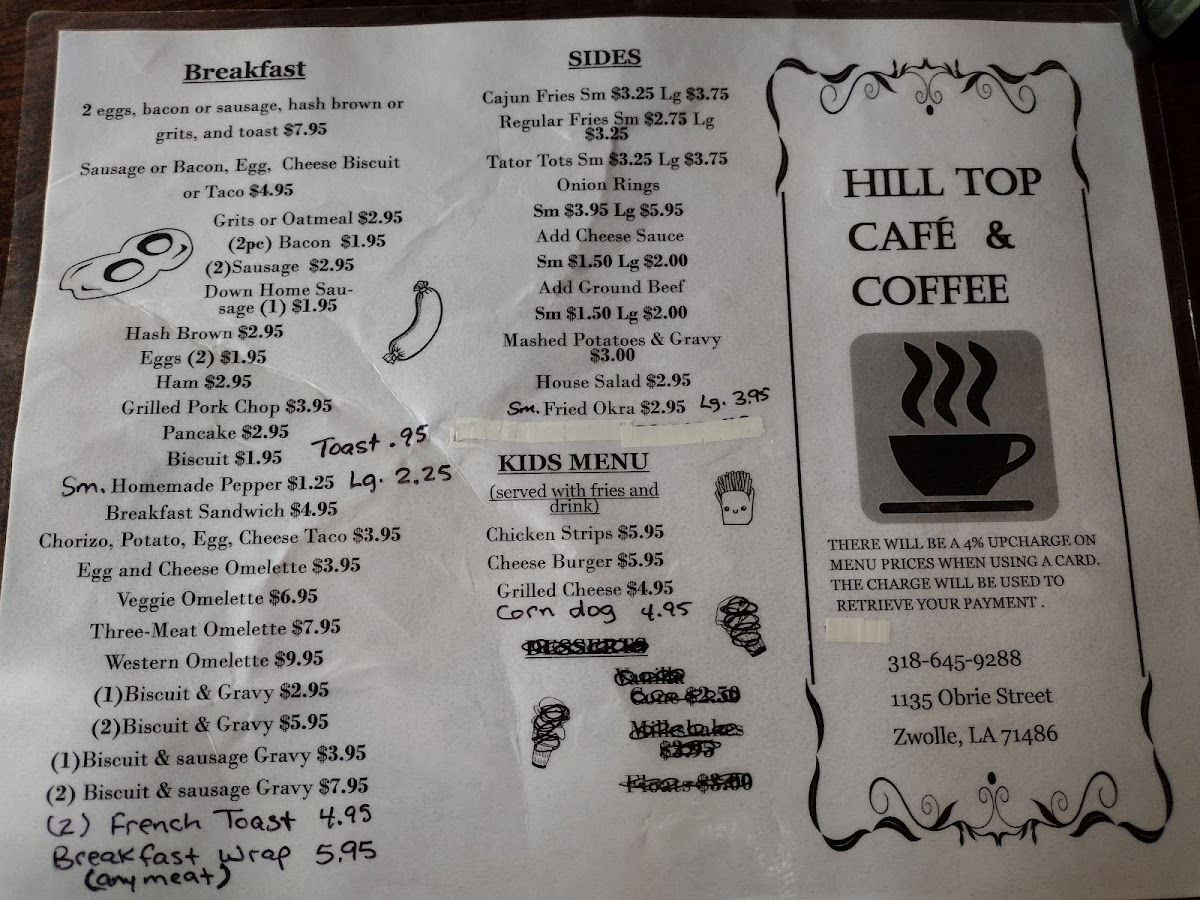 Breakfast
2 eggs, bacon or sausage, hash brown or
grits, and toast $7.95
Sausage or Bacon, Egg, Cheese Biscuit
or Taco $4.95
Grits or Oatmeal $2.95
(2pc) Bacon $1.95
(2)Sausage $2.95
Down Home Sau-
sage (1) $1.95
Hash Brown $2.95
Eggs (2) $1.95
Ham $2.95
Grilled Pork Chop $3.95
Pancake $2.95
Toast .95
Biscuit $1.95
Sm. Homemade Pepper $1.25 Lg. 2.25
Breakfast Sandwich $4.95
Chorizo, Potato, Egg, Cheese Taco $3.95
Egg and Cheese Omelette $3.95
Veggie Omelette $6.95
Three-Meat Omelette $7.95
Western Omelette $9.95
(1)Biscuit & Gravy $2.95
(2)Biscuit & Gravy $5.95
(1)Biscuit & sausage Gravy $3.95
(2) Biscuit & sausage Gravy $7.95
(2) French Toast 4.95
Breakfast Wrap 5.95
(any meat)
SIDES
Cajun Fries Sm $3.25 Lg $3.75
Regular Fries Sm $2.75 Lg
$3.25
Tator Tots Sm $3.25 Lg $3.75
Onion Rings
Sm $3.95 Lg $5.95
Add Cheese Sauce
Sm $1.50 Lg $2.00
Add Ground Beef
Sm $1.50 Lg $2.00
Mashed Potatoes & Gravy
$3.00
House Salad $2.95
Sm. Fried Okra $2.95 Lg. 3.95
KIDS MENU
(served with fries and
drink)
Chicken Strips $5.95
Cheese Burger $5.95
Grilled Cheese $4.95
Corn dog 4.95
DESSERTS
Vanilla
Cone $2.50
Milkshakes
$3.95
Floats $3.00
HILL TOP
CAFÉ &
COFFEE
THERE WILL BE A 4% UPCHARGE ON
MENU PRICES WHEN USING A CARD.
THE CHARGE WILL BE USED TO
RETRIEVE YOUR PAYMENT .
318-645-9288
1135 Obrie Street
Zwolle, LA 71486